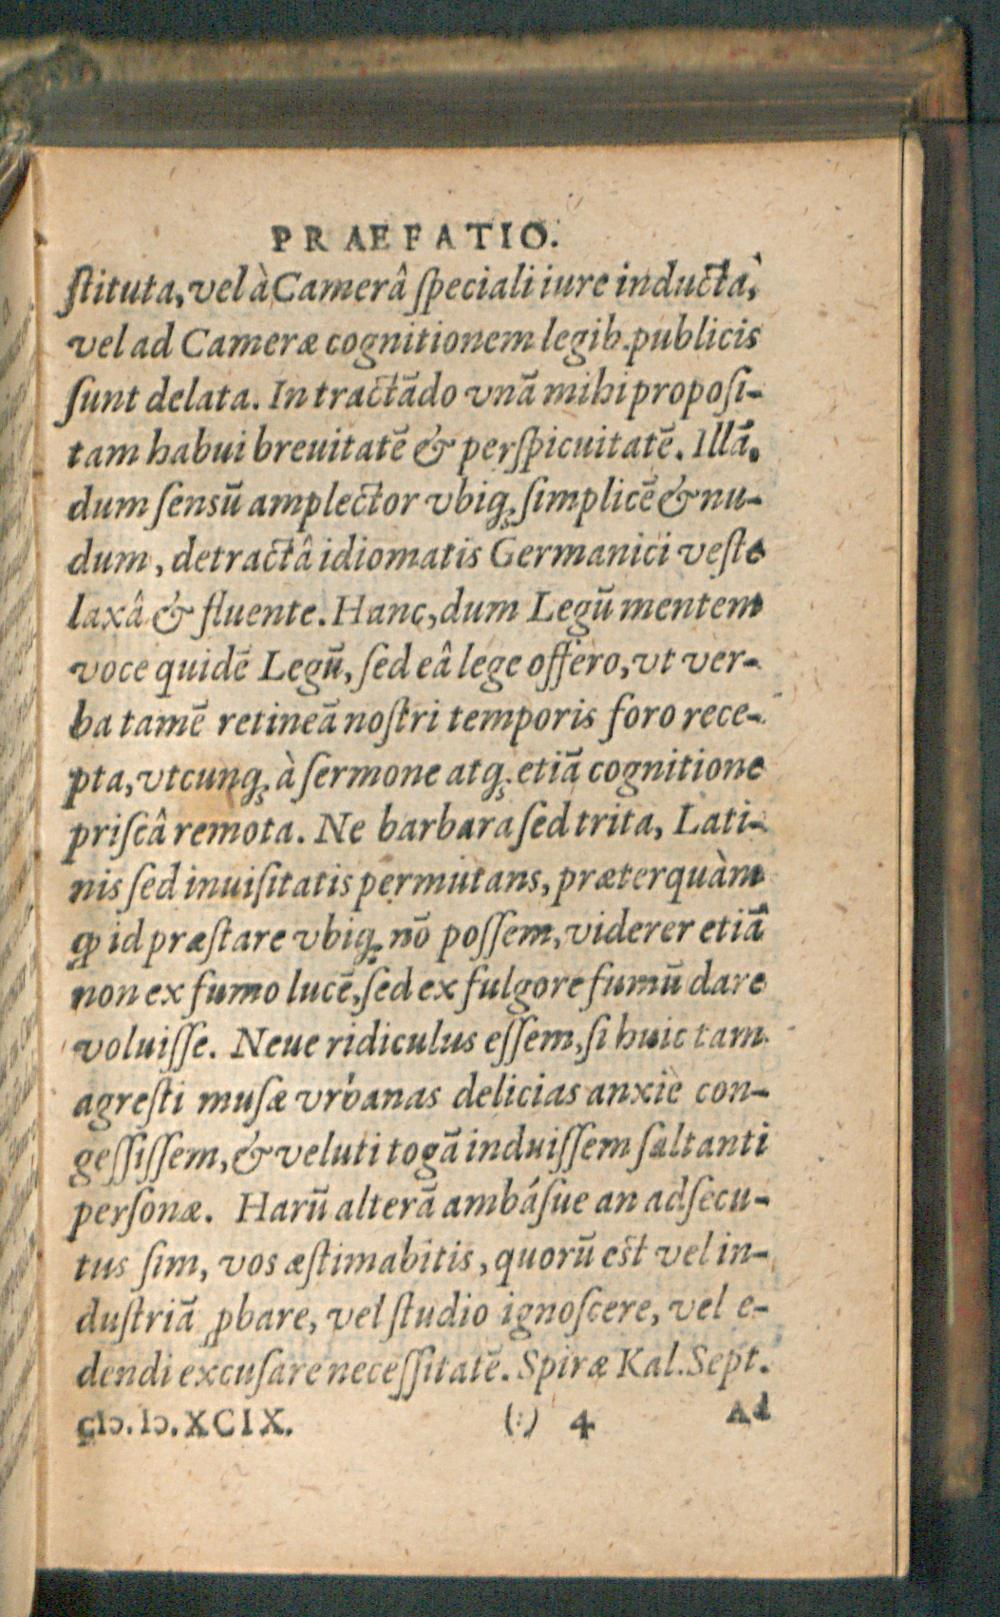 PRAEFATIO.
ſtituta, vel à Camerâ ſpeciali iure inducta,
vel ad Cameræ cognitionem legib. publicis
ſunt delata. In tractādo vnā mihi propoſi-
tam habui breuitatē & perſpicuitatē. Illā,
dum ſensū amplector vbiq; ſimplicē & nu-
dum, detractâ idiomatis Germanici veſte
laxâ & fluente. Hanc, dum Legū mentem
voce quidē Legū, ſed eâ lege offero, vt ver-
ba tamē retineā noſtri temporis foro rece-
pta, vtcunq; à ſermone atq; etiā cognitione
priſcâ remota. Ne barbara ſed trita, Lati-
nis ſed inuiſitatis permutans, præterquàm
ꝙ id præſtare vbiq; nō poſſem, viderer etiā
non ex fumo lucē, ſed ex fulgore fumū dare
voluiſſe. Neue ridiculus eſſem, ſi huic tam
agreſti muſæ vrbanas delicias anxiè con-
geſſiſſem, & veluti togā induiſſem ſaltanti
perſonæ. Harū alterā ambáſue an adſecu-
tus ſim, vos æſtimabitis, quorū est vel in-
duſtriā ꝓbare, vel ſtudio ignoſcere, vel e-
dendi excuſare neceſſitatē. Spiræ Kal. Sept.
cIɔ. Iɔ. XCIX. (:) 4 Ad